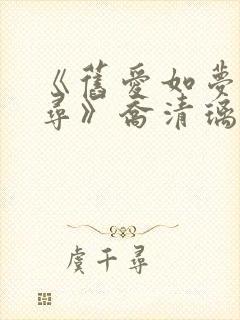 《舊愛如夢
尋》喬清璃
虞千尋